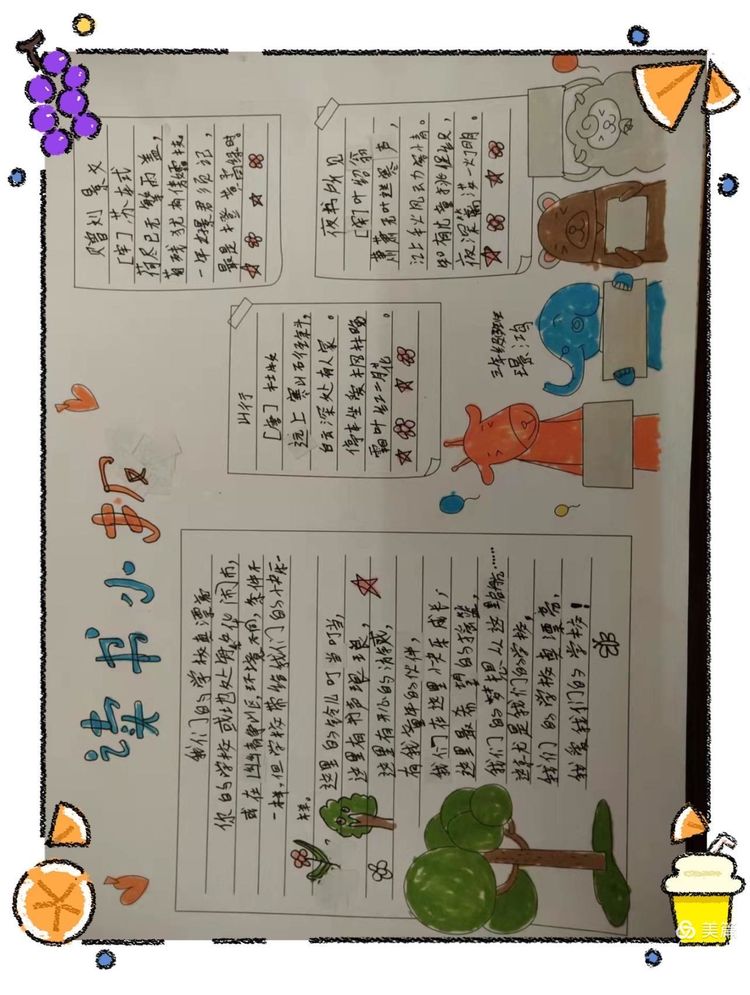 读书小报
我们的学校真漂亮
你的学校或地处闹市,
或在山区,环境不同,条件不
一样,但学校带给我们的快乐一
样。
这里的铃儿叮当叮当,
这里有书声琅琅,
这里有开心的
有我童年的伙伴,
我们在这里快乐成长,
这里的摇篮,
我们的梦想从这里启航……
这就是我们的学校,
我们的学校真漂亮,
我爱我们的学校!
赠刘景文
[宋]苏东坡
荷尽已无擎雨盖,
菊残犹有傲霜枝。
一年好景君须记,
最是橙黄橘绿时。
山行
[唐]杜牧
远上寒山石径斜,
白云深处有人家。
停车坐爱枫林晚
霜叶红二月花。
夜书所见
[宋]叶绍翁
萧萧梧叶送寒声,
江上秋风动客情。
知有儿童挑促织,
夜深篱落一灯明。
三年级
美篇